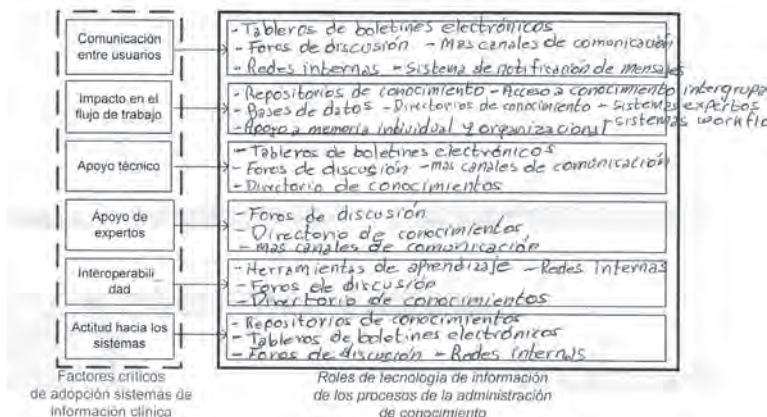 Comunicación
entre usuarios
- Tableros de boletines electrónicos
- Foros de discusión - Mas canales de comonicación
- Redes internas - Sistema de notificación de mensajes
Impacto en el
flujo de trabajo
- Repositorios de conocimiento - Acceso a conocimiento intergrupa
- Bases de datos - Directorios de conocimiento - Sistemas expertos
- Apoyo a memoria individual y organizacional - Sistemas workflo
Apoyo técnico
- Tableros de boletines electrónicos
- Foros de discusión - mas canales de comunicación
- Directorio de conocimientos
Apoyo de
expertos
- Foros de discusión
- Directorio de conocimientos
- mas canales de comunicación
Interoperabili_
dad
- Herramientas de aprendizaje - Redes Internas
- Foros de discusión
- Directorio de conocimientos
Actitud hacia los
sistemas
- Repositorios de conocimientos
- Tableros de boletines electrónicos
- Foros de discución - Redes internas
Factores críticos
de adopción sistemas de
información clínica
Roles de tecnología de información
de los procesos de la administración
de conocimiento